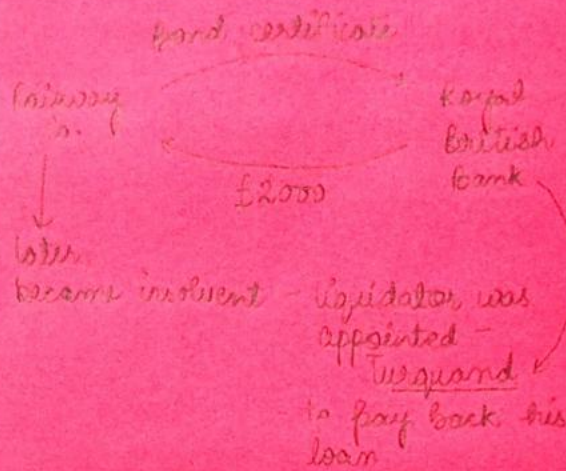 Bond certificate
Railway
Royal
British
bank
£2000
later
became insolvent - liquidator was
appointed -
Turquand
to pay back his
loan